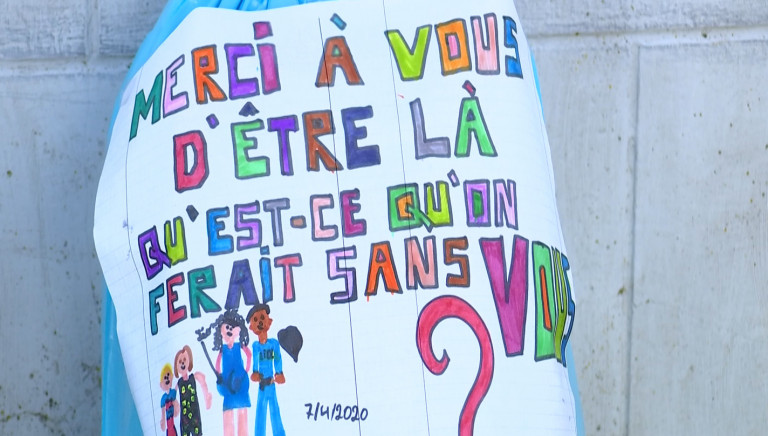 MERCI À VOUS
D'ÊTRE LÀ
QU'EST-CE QU'ON
FERAIT SANS VOUS
?
7/4/2020